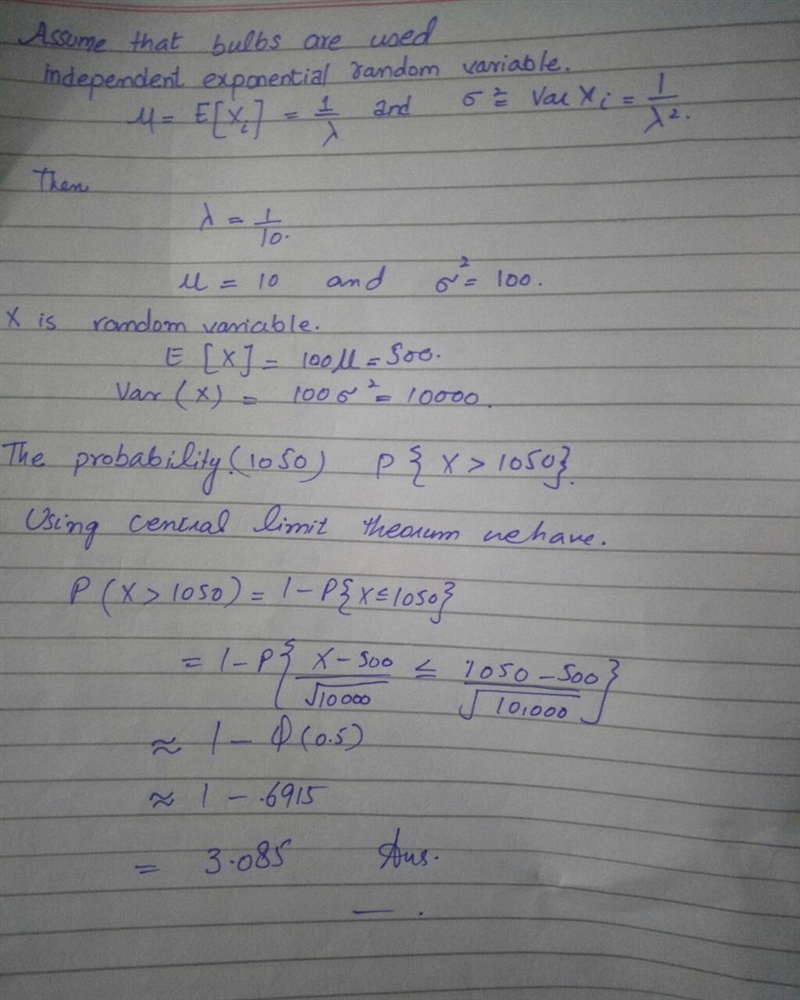 Assume that bulbs are used
independent exponential random variable.
μ = E[Xi] = 1/λ and σ² = Var Xi = 1/λ².
Then
λ = 1/10.
μ = 10 and σ² = 100.
X is random variable.
E [X] = 100μ = 500.
Var (X) = 100σ² = 10000.
The probability (1050) P{ X > 1050}.
Using central limit theorum we have.
P (X > 1050) = 1 - P{X ≤ 1050}
= 1 - P{ X - 500 / √10000 ≤ 1050 - 500 / √10,000 }
≈ 1 - Φ(0.5)
≈ 1 - .6915
= 3.085 Ans.